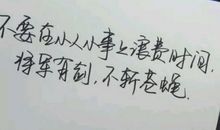 不要在小人小事上浪费时间,
将军有剑,不斩苍蝇.